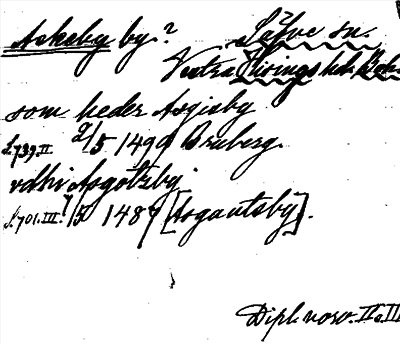 Askeby by? Säfve sn.
Vestra Hisings hd. Boh.
som heder Asgisby
S. 739. II 2/5 1499 Bruberg.
vdhi Asgotzby
S. 701. III. 7/5 1487 [Asgautsby].
Dipl. norv. II o. III